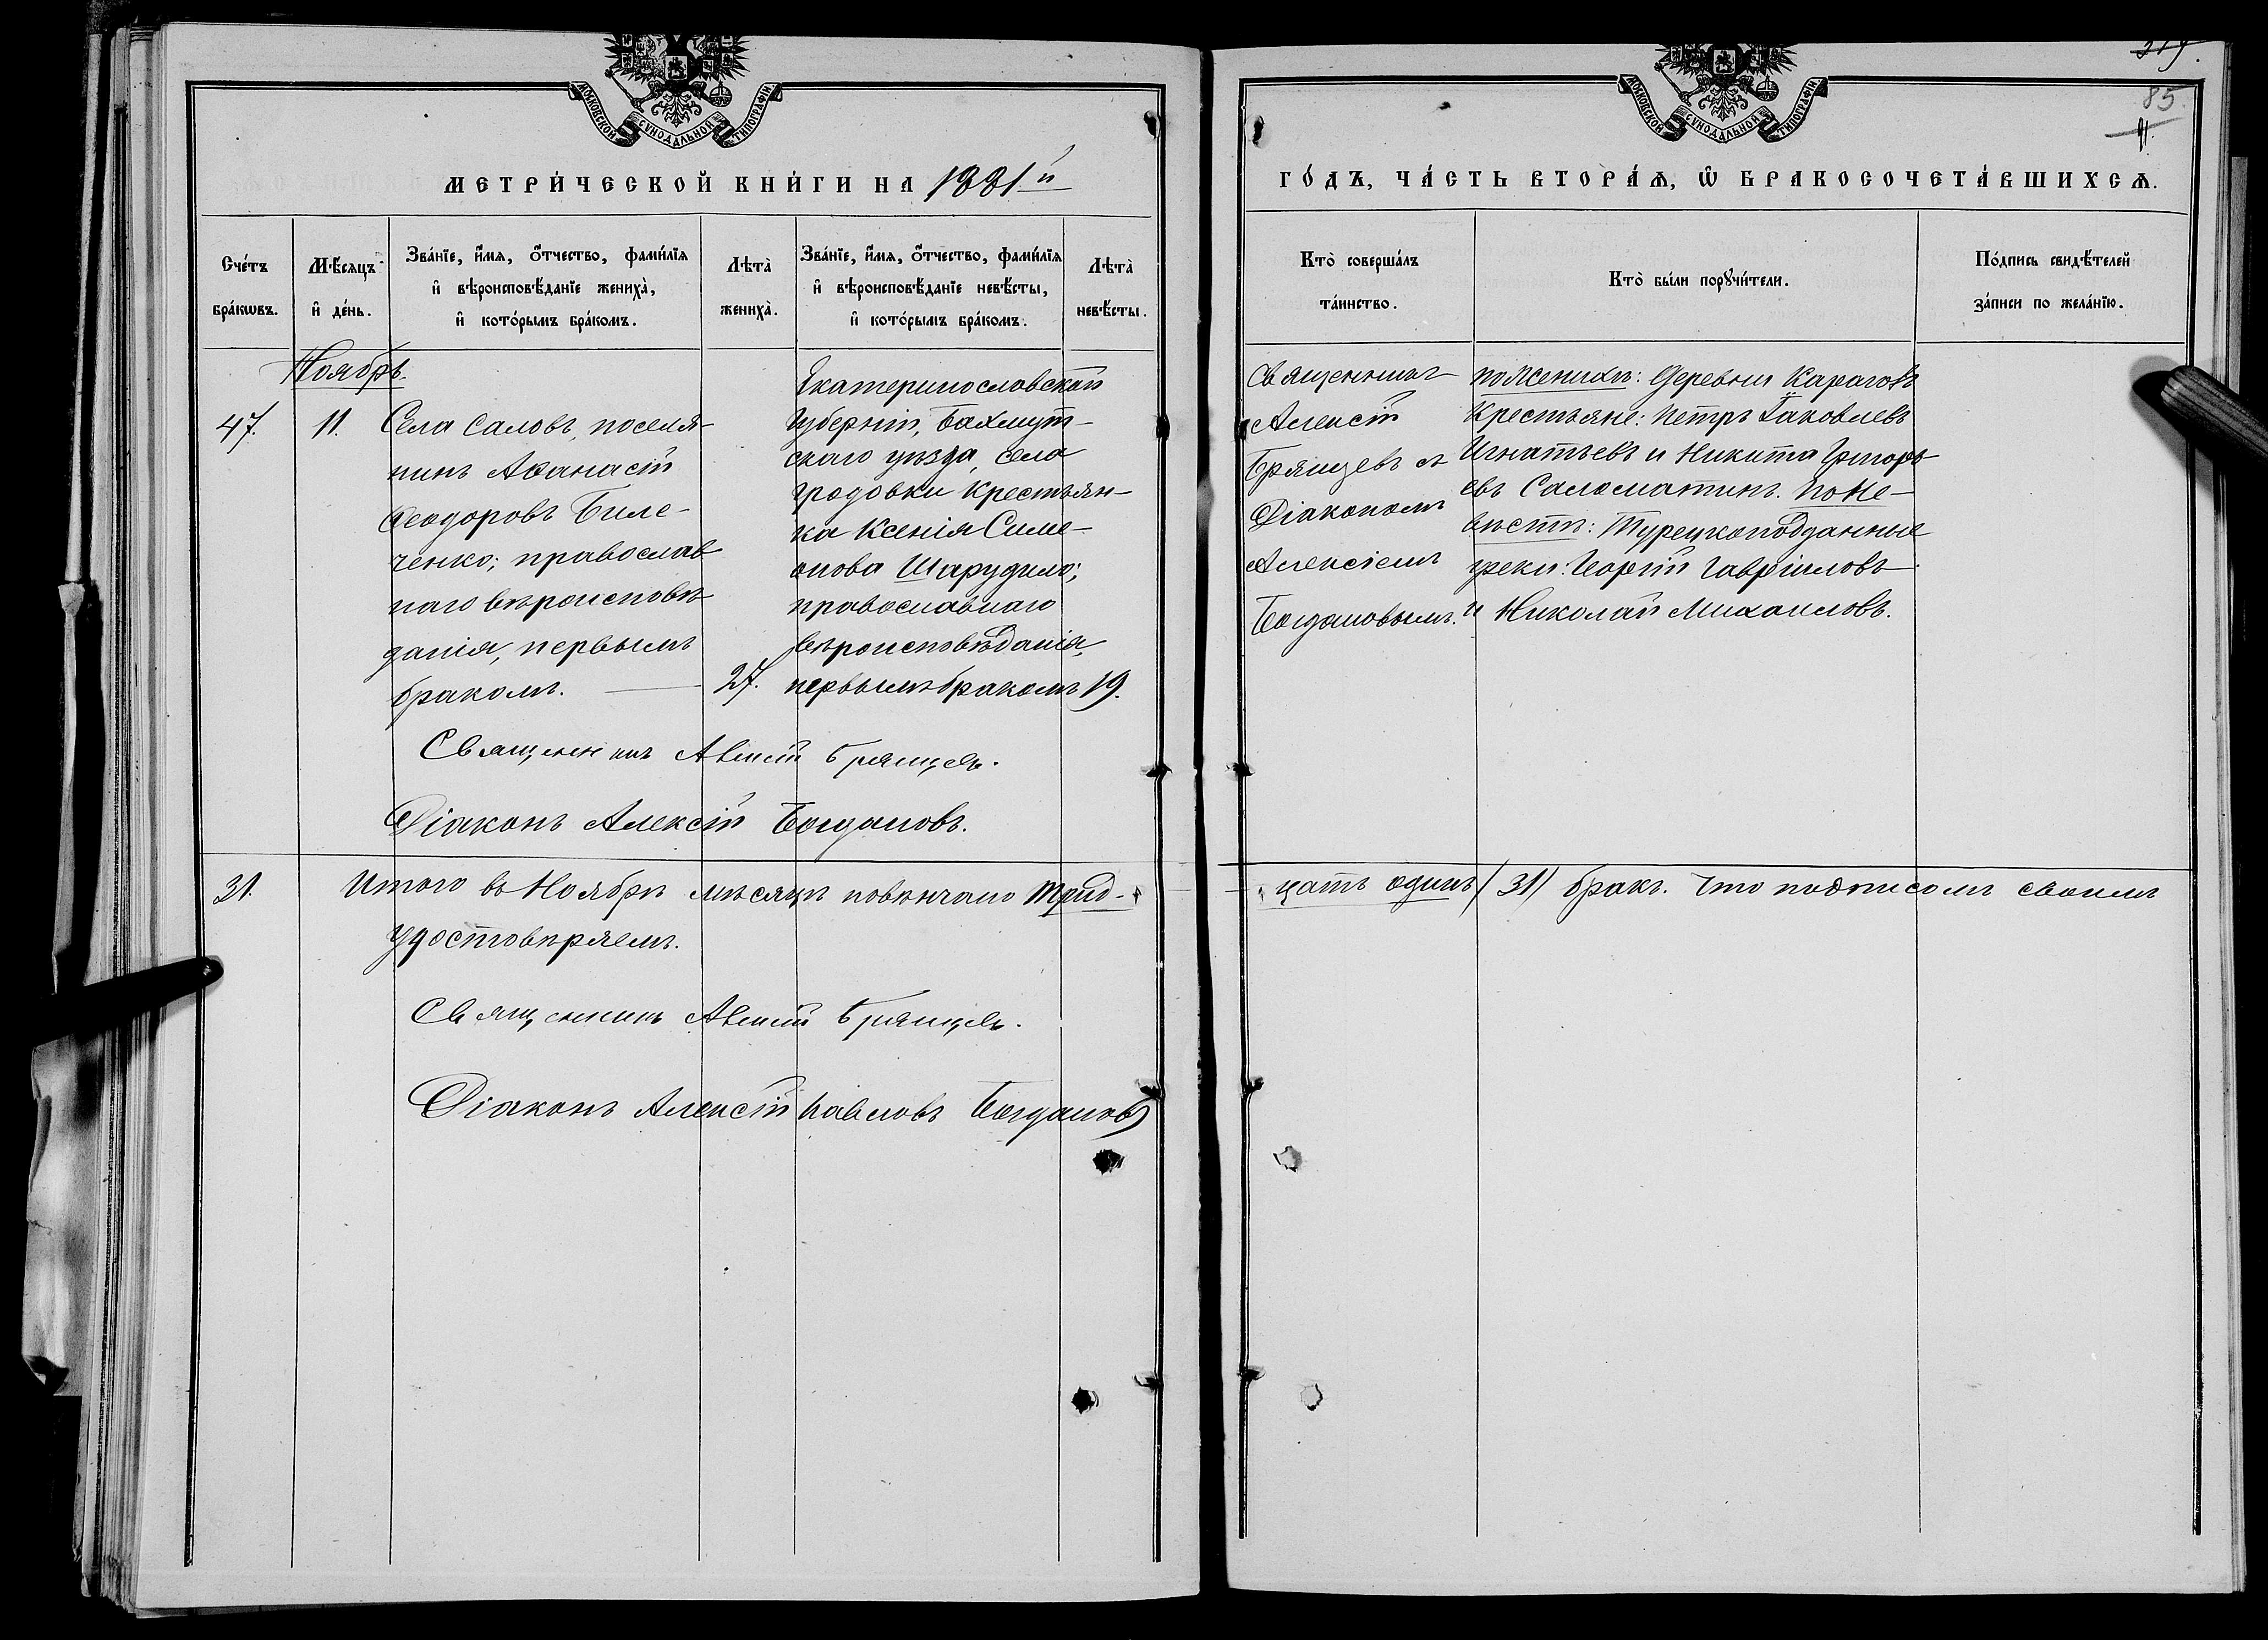 МОСКОВСКОЙ СѴНОДАЛЬНОЙ ТИПОГРАФІИ
МЕТРИ́ЧЕСКОЙ КНИ́ГИ НА 1881й
Сче́тъ бра́кѡвъ.
Мѣ́сяцъ и҆ де́нь.
Зва́нїе, и҆́мѧ, ѻ҆́тчество, фами́лїѧ
и҆ вѣроисповѣ́данїе жениха̀,
и҆ кото́рымъ бра́комъ.
Лѣта̀ жениха̀.
Зва́нїе, и҆́мѧ, ѻ҆́тчество, фами́лїѧ
и҆ вѣроисповѣ́данїе невѣ́сты,
и҆ кото́рымъ бра́комъ.
Лѣта̀ невѣ́сты.
Ноябрь.
47.
11.
Села Саловъ, поселя-
нинъ Аѳанасій
Ѳеодоровъ Биле-
ченко; православ
наго вѣроисповѣ
данія, первымъ
бракомъ.
27.
Екатеринославской
Губерніи, Бахмут-
скаго уѣзда, села
Гродовки Крестьян-
ка Ксенія Симе-
онова Шарудило;
православнаго
вѣроисповѣданія,
первымъ бракомъ
19.
Священникъ Алексій Брянцевъ.
Діаконъ Алексій Богдановъ.
31.
Итого въ Ноябрѣ мѣсяцѣ повѣнчано Трид-
удостовѣряемъ.
Священникъ Алексій Брянцевъ.
Діаконъ Алексій Павловъ Богдановъ
МОСКОВСКОЙ СѴНОДАЛЬНОЙ ТИПОГРАФІИ
85
91.
ГО́ДЪ, ЧА́СТЬ ВТОРА́Ѧ, Ѡ҆ БРАКОСОЧЕТА́ВШИХСѦ.
Кто̀ соверша́лъ
та́инство.
Кто̀ бы́ли порꙋчи́тели.
По́дпись свидѣ́телей
за́писи по жела́нїю.
Священникъ
Алексій
Брянцевъ съ
Діакономъ
Алексіемъ
Богдановымъ.
по Женихѣ: Деревни Караговъ
Крестьяне: Петръ Іаковлевъ
Игнатьевъ и Никита Григорь
евъ Саломатинъ. По Не-
вѣстѣ: Турецкоподданные
греки: Георгій Гавріиловъ
и Николай Михаиловъ.
цать одинъ (31) бракъ. Что подписомъ своимъ